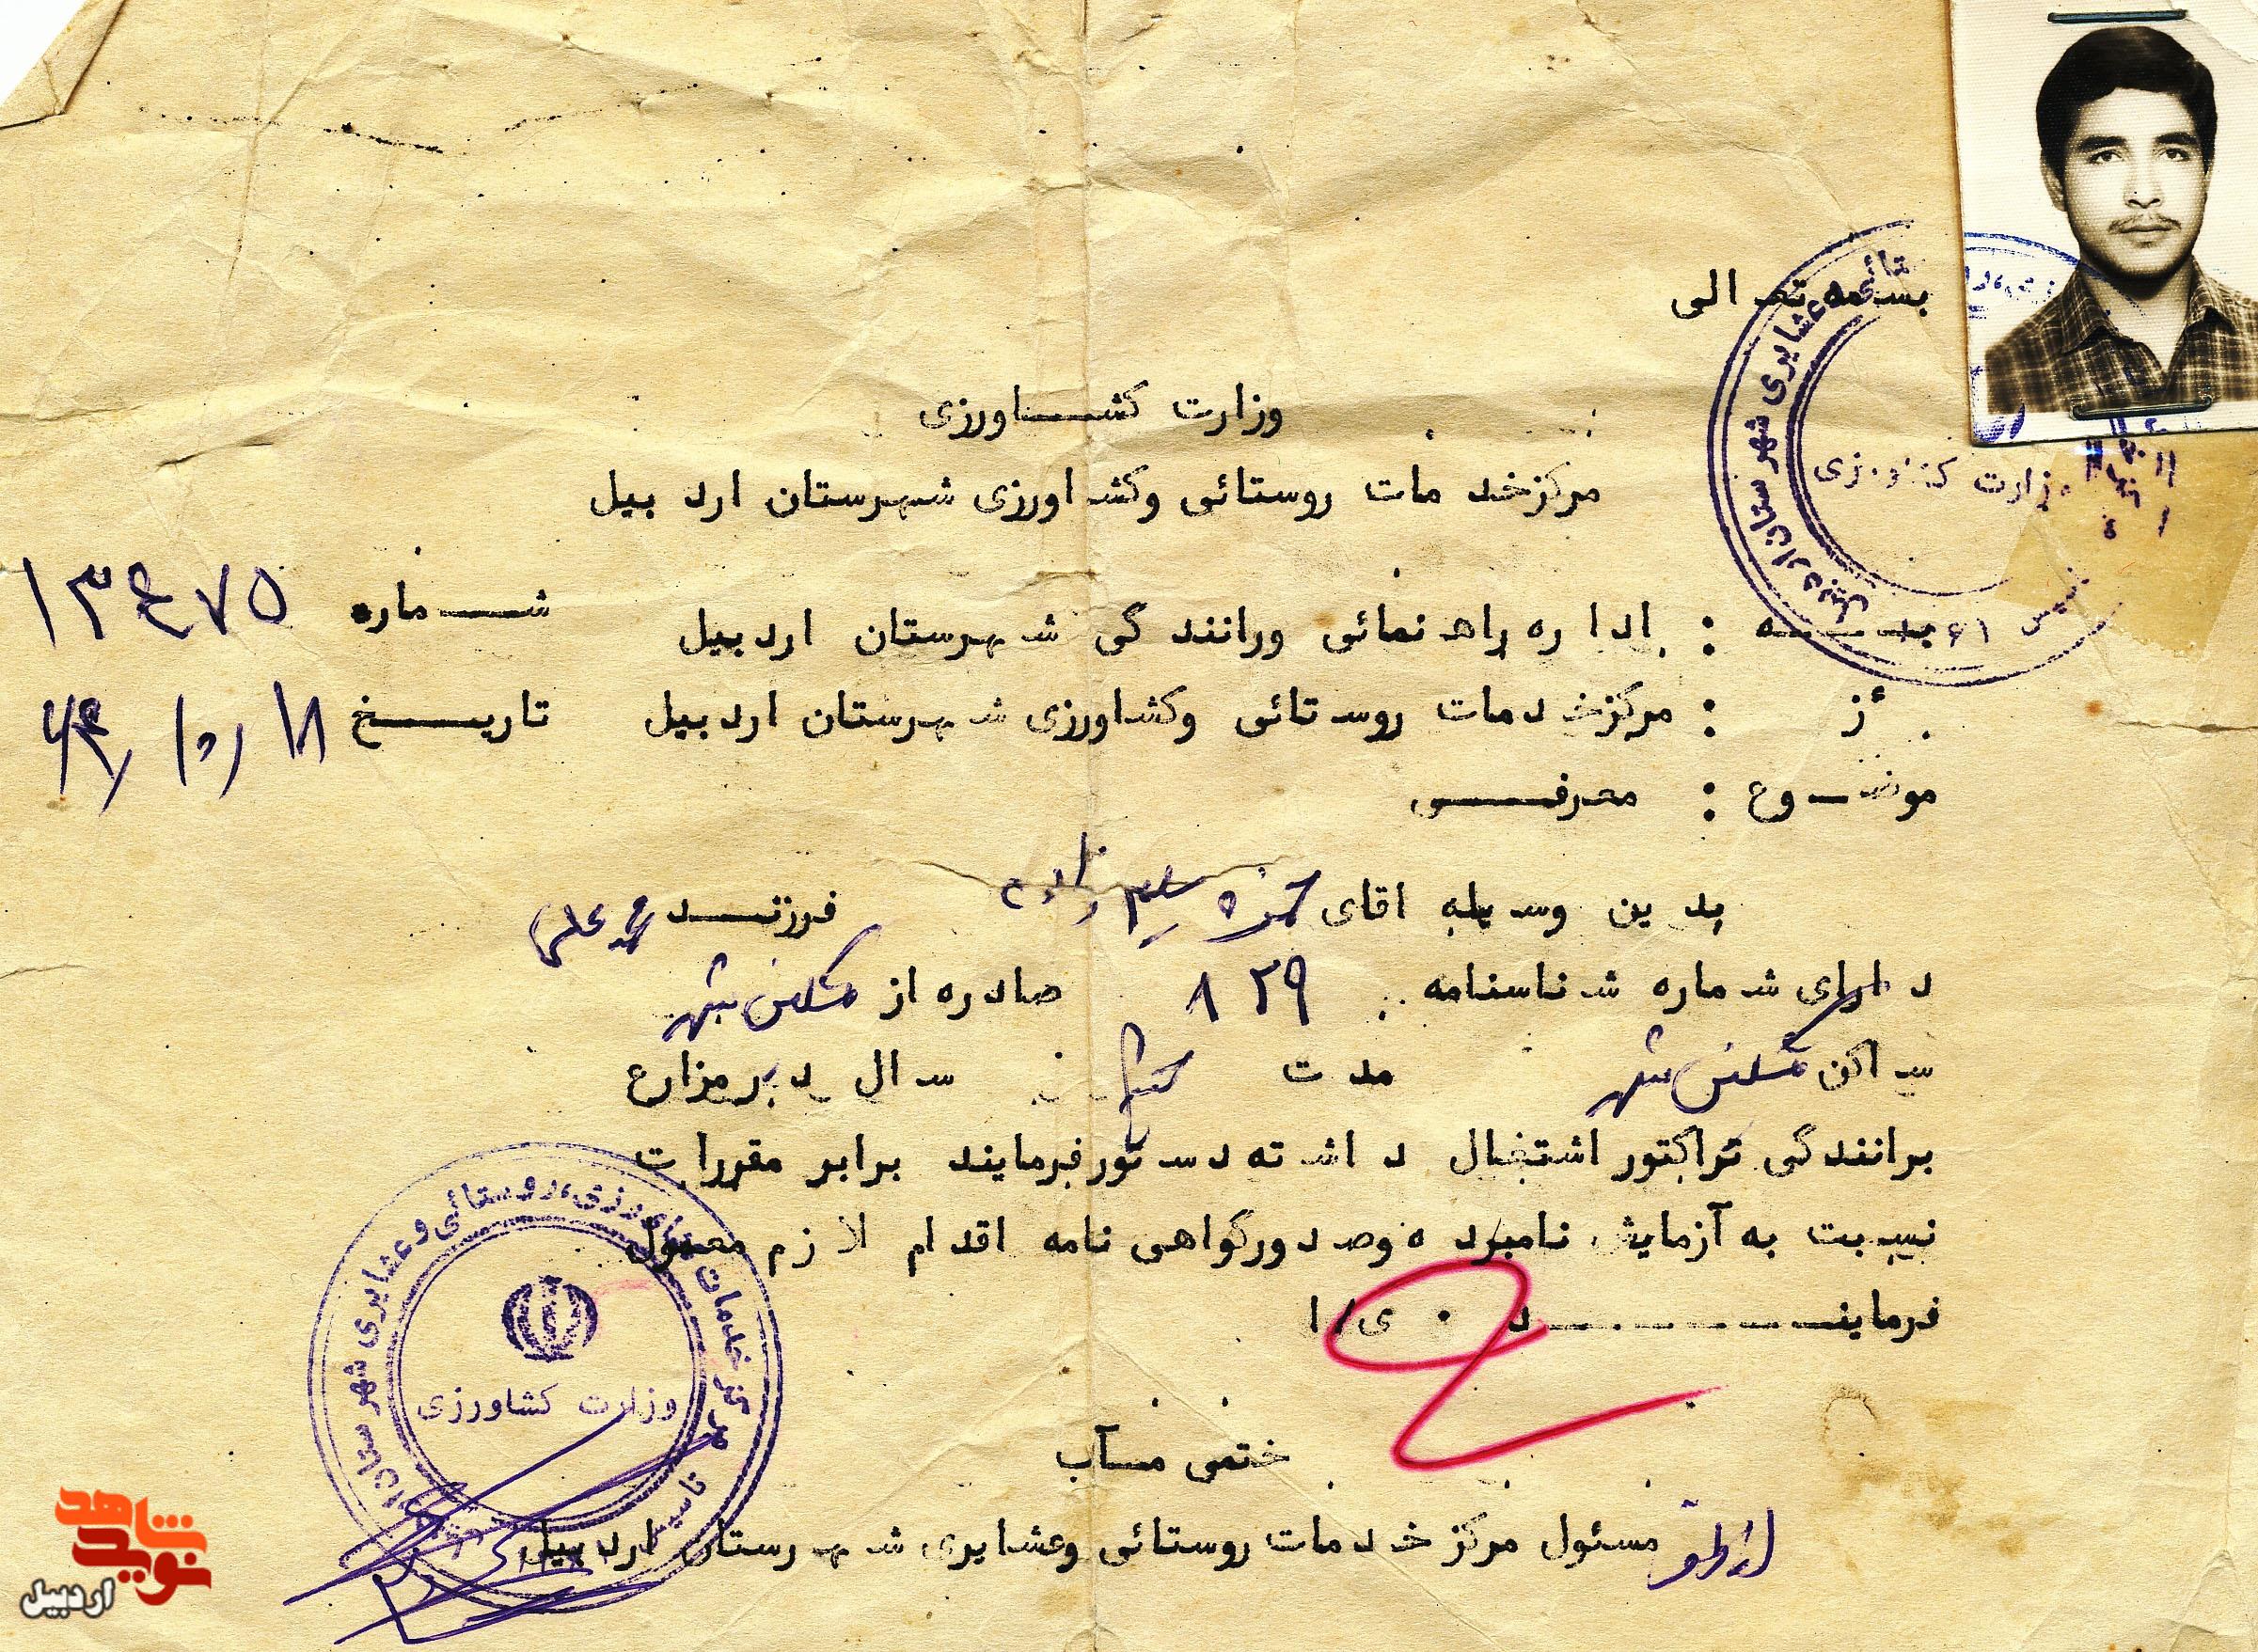 بسمه تعالی
وزارت کشاورزی
مرکز خدمات روستائی وکشاورزی شهرستان اردبیل
شماره ۱۳۴۷۵
به : اداره راهنمائی ورانندگی شهرستان اردبیل
تاریخ ۱۸ /۱۰ /۶۳
از : مرکز خدمات روستائی وکشاورزی شهرستان اردبیل
موضوع : معرفی
بدین وسیله اقای حمزه سلیم زاده فرزند محمد علی
دارای شماره شناسنامه ۸۲۹ صادره از مشکین شهر
ساکن مشکین شهر مدت سال در مزارع
برانندگی تراکتور اشتغال داشته دستور فرمایند برابر مقررات
نسبت به آزمایش نامبرده وصدور گواهی نامه اقدام لازم معمول
فرمایند ۰ ی/ا
ختمی مآب
مسئول مرکز خدمات روستائی وعشایری شهرستان اردبیل
وزارت کشاورزی
مرکز خدمات کشاورزی، روستائی و عشایری شهرستان
تاسیس
وزارت کشاورزی
عشایری شهرستان اردبیل
نوید شاهد
اردبیل